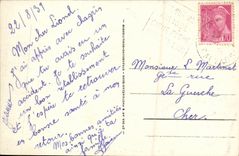 22/8/39
Mon cher Lionel
J'ai appris avec chagrin
que tu avais eu un
accident. Je te souhaite
un bon rétablissement
et j'espère te retrouver
en bonne santé à mon
retour.
Mes bonnes amitiés
ainsi qu'à ta
famille
Monsieur L Martinat
rue
La Guerche
Cher